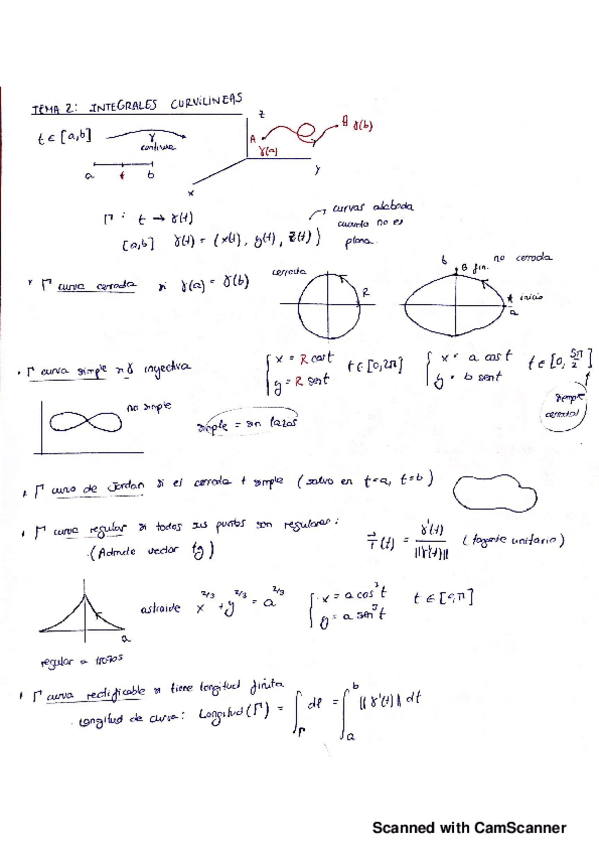 TEMA 2: INTEGRALES CURVILINEAS
t ∈ [a,b]
γ
continua
a t b
z
A
γ(a)
B γ(b)
y
x
Γ : t → γ(t)
[a,b] γ(t) = (x(t), y(t), z(t))
curvas alabeada
cuando no es
plana.
* Γ curva cerrada si γ(a) = γ(b)
cerrada
R
b
B fin.
no cerrada
A inicio
a
· Γ curva simple si γ inyectiva
{ x = R cos t
y = R sen t
t ∈ [0,2π]
{ x = a cos t
y = b sent
t ∈ [0, 5π/2]
siempre
cerrado!
no simple
simple = sin lazos
· Γ curva de Jordan si es cerrada + simple (salvo en t=a, t=b)
· Γ curva regular si todos sus puntos son regulares:
(Admite vector tg)
T(t) = γ'(t) / ||γ'(t)|| (tangente unitario)
a
regular a trozos
astroide x^2/3 + y^2/3 = a^2/3
{ x = a cos³ t
y = a sen³ t
t ∈ [0,π]
· Γ curva rectificable si tiene longitud finita
· Longitud de curva: Longitud(Γ) = ∫_Γ dl = ∫_a^b ||γ'(t)|| dt
Scanned with CamScanner